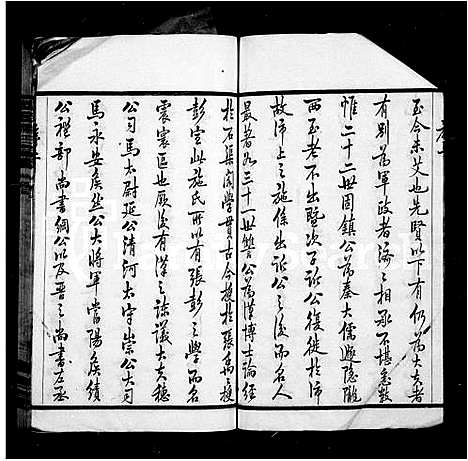 至今未艾也先賢以下有仍為大夫者
有別為軍政者論之相承不堪悉數
惟二十二世圉鎮公為秦大儒遯隱隴
西至老不出暨次子訢公復徙於沛
故沛上之施係出訢公之後而名人
最著如三十一世讐公為漢博士論經
於石渠閣學貫古今授於張禹授
彭宣此施氏所以有張彭之學而名
震寰區也厥後有漢之諫議大夫穗
公司馬太尉延公清河太守崇公大司
馬永安矦丝公大將軍當陽矦績
公禮部尚書綱公以及晋之尚書左丞